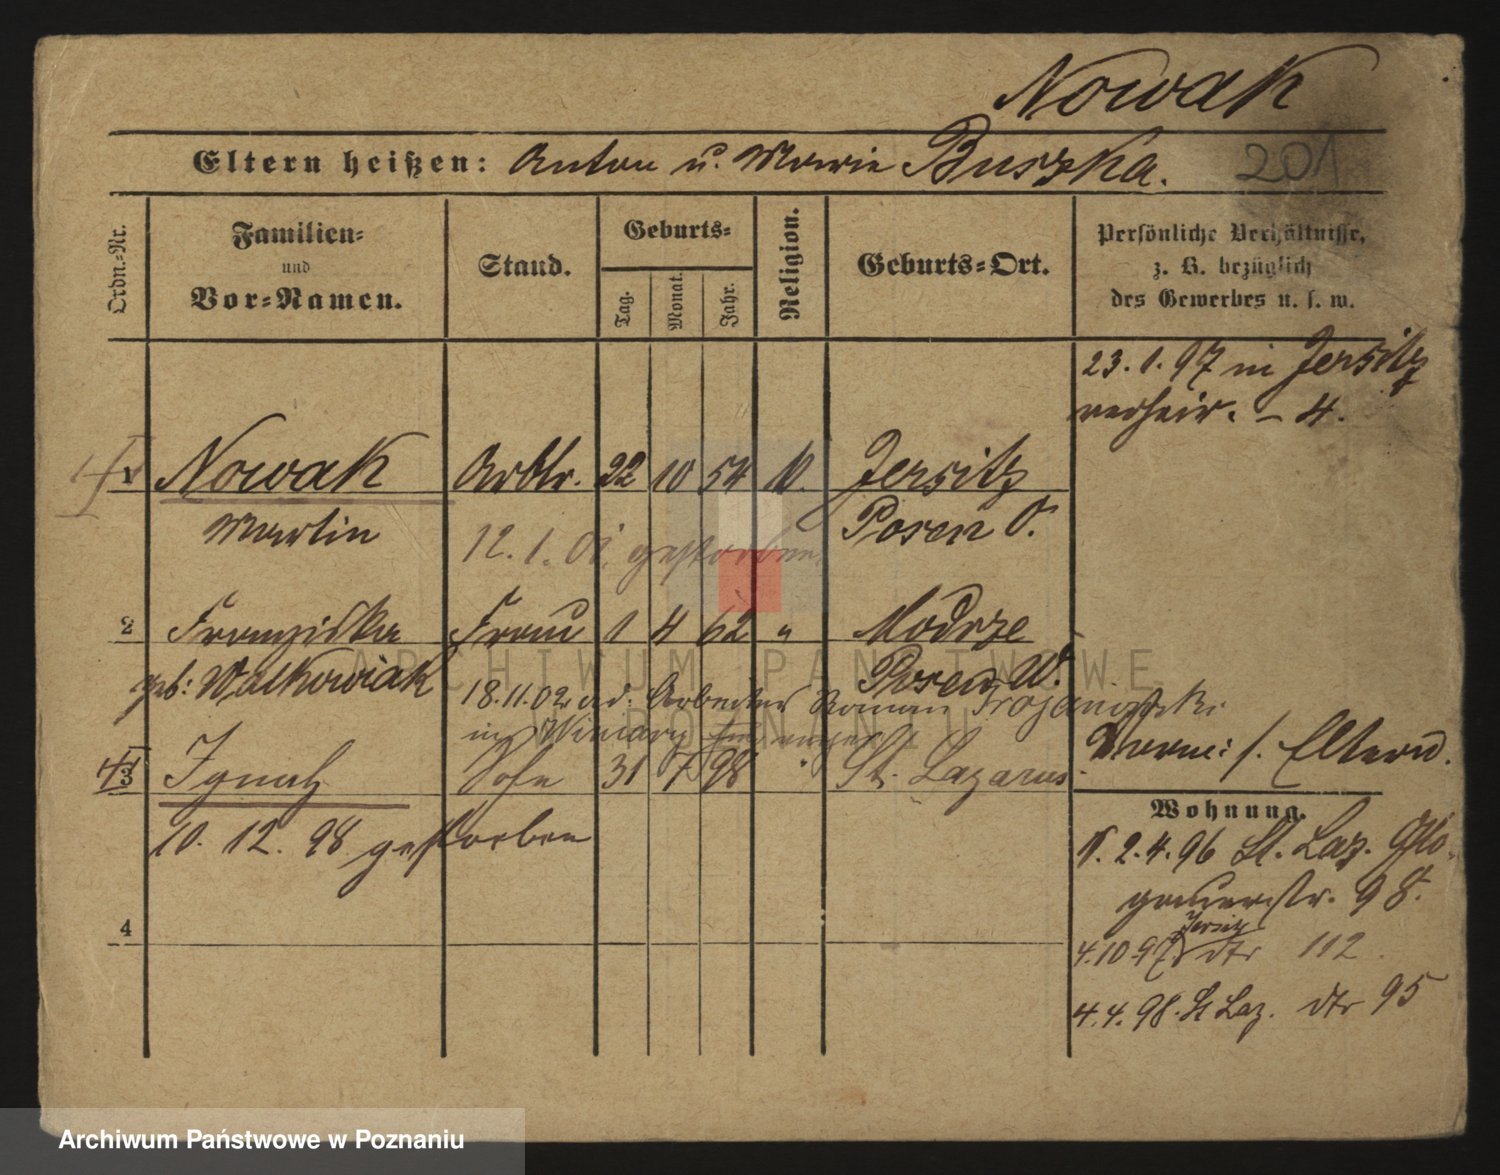 Nowak
Eltern heißen: Anton u. Marie Buszka. 201
Ordn.-Nr. Familien- und Vor-Namen. Stand. Geburts- Tag. Monat. Jahr. Religion. Geburts-Ort. Persönliche Verhältnisse, z. B. bezüglich des Gewerbes u. s. w.
23.1.97 in Jersitz
verheir. - 4.
1 Nowak Arbtr. 22 10 54 Jersitz
Martin 12.1.01. gestorben Posen O.
2 Franziska Frau 1 4 62 " Modrze
geb: Walkowiak Posen W.
18.11.02 Arbeiter Roman
in Winiary
Eltern.
3 Ignatz Sohn 31 7 98 " St. Lazarus
10.12.98 gestorben
Wohnung.
2.4.96 St. Laz. Glo-
gauerstr. 98.
Jersitz
4.10.97 dto 112
4.4.98. St Laz. dto 95
4
ARCHIWUM PAŃSTWOWE
W POZNANIU
Archiwum Państwowe w Poznaniu